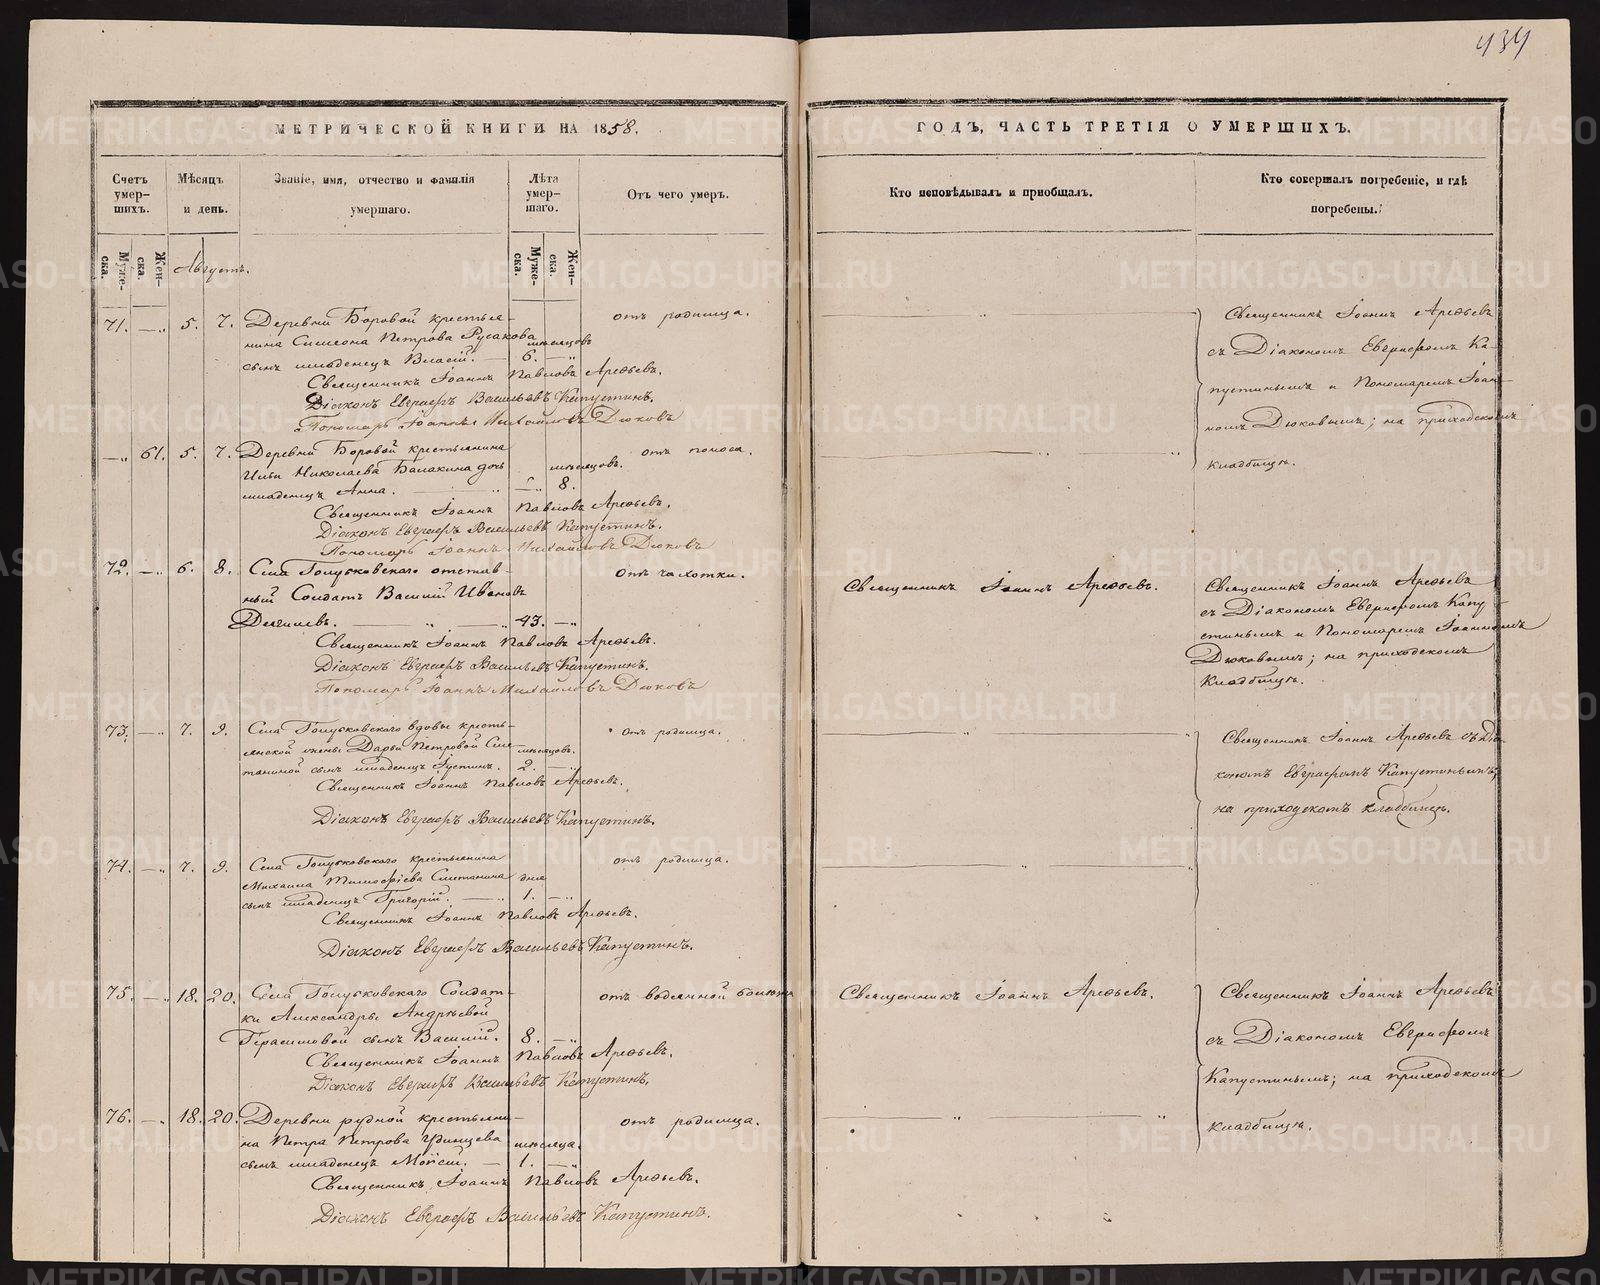 434
МЕТРИЧЕСКОЙ КНИГИ НА 1858.
Счетъ умер-шихъ.
Муже-ска.
Жен-ска.
Мѣсяцъ и день.
Званіе, имя, отчество и фамилія умершаго.
Лѣта умер-шаго.
Муже-ска.
Жен-ска.
Отъ чего умеръ.
Августъ.
71. — „ 5. 7. Деревни Боровой крестья- отъ родимца.
нина Симеона Петрова Русакова мѣсяцовъ
сынъ младенецъ Власій. — 6. — „
Священникъ Іоаннъ Павловъ Арефьевъ.
Діаконъ Евграфъ Васильевъ Капустинъ.
Пономарь Іоаннъ Михайловъ Дюковъ
— „ 61. 5. 7. Деревни Боровой крестьянина отъ поноса.
Ильи Николаева Балакина дочь мѣсяцовъ.
младенецъ Анна. — „ — „ 8.
Священникъ Іоаннъ Павловъ Арефьевъ.
Діаконъ Евграфъ Васильевъ Капустинъ.
Пономарь Іоаннъ Михайловъ Дюковъ
72. — „ 6. 8. Села Голубковскаго отстав- отъ чахотки.
ный Солдатъ Василій Ивановъ
— „ — „ 43. — „
Священникъ Іоаннъ Павловъ Арефьевъ.
Діаконъ Евграфъ Васильевъ Капустинъ.
Пономарь Іоаннъ Михайловъ Дюковъ
73. — „ 7. 9. Села Голубковскаго вдовы кресть- отъ родимца.
янской жены Дарьи Петровой Сме- мѣсяцовъ.
таниной сынъ младенецъ Іустинъ. 2. — „
Священникъ Іоаннъ Павловъ Арефьевъ.
Діаконъ Евграфъ Васильевъ Капустинъ.
74. — „ 7. 9. Села Голубковскаго крестьянина отъ родимца.
Михаила Тимофѣева Сметанина дня
сынъ младенецъ Григорій. — „ 1. — „
Священникъ Іоаннъ Павловъ Арефьевъ.
Діаконъ Евграфъ Васильевъ Капустинъ.
75. — „ 18. 20. Села Голубковскаго Солдат- отъ водяанной болѣзни
ки Александры Андрѣевой
Герасимовой сынъ Василій. 8. — „
Священникъ Іоаннъ Павловъ Арефьевъ.
Діаконъ Евграфъ Васильевъ Капустинъ.
76. — „ 18. 20. Деревни рудной крестьяни- отъ родимца.
на Петра Петрова мѣсяца.
сынъ младенецъ Моисій. — 1. — „
Священникъ Іоаннъ Павловъ Арефьевъ.
Діаконъ Евграфъ Васильевъ Капустинъ.
ГОДЪ, ЧАСТЬ ТРЕТІЯ О УМЕРШИХЪ.
Кто исповѣдывалъ и пріобщалъ.
Кто совершалъ погребеніе, и гдѣ погребены.
Священникъ Іоаннъ Арефьевъ
съ Діакономъ Евграфомъ Ка-
пустинымъ и Пономаремъ Іоан-
номъ Дюковымъ; на приходскомъ
кладбищѣ.
Священникъ Іоаннъ Арефьевъ.
Священникъ Іоаннъ Арефьевъ
съ Діакономъ Евграфомъ Капу-
стинымъ и Пономаремъ Іоанномъ
Дюковымъ; на приходскомъ
Кладбищѣ.
Священникъ Іоаннъ Арефьевъ съ Діа-
кономъ Евграфомъ Капустинымъ;
на приходскомъ кладбищѣ.
Священникъ Іоаннъ Арефьевъ.
Священникъ Іоаннъ Арефьевъ
съ Діакономъ Евграфомъ
Капустинымъ; на приходскомъ
кладбищѣ.
METRIKI.GASO-URAL.RU